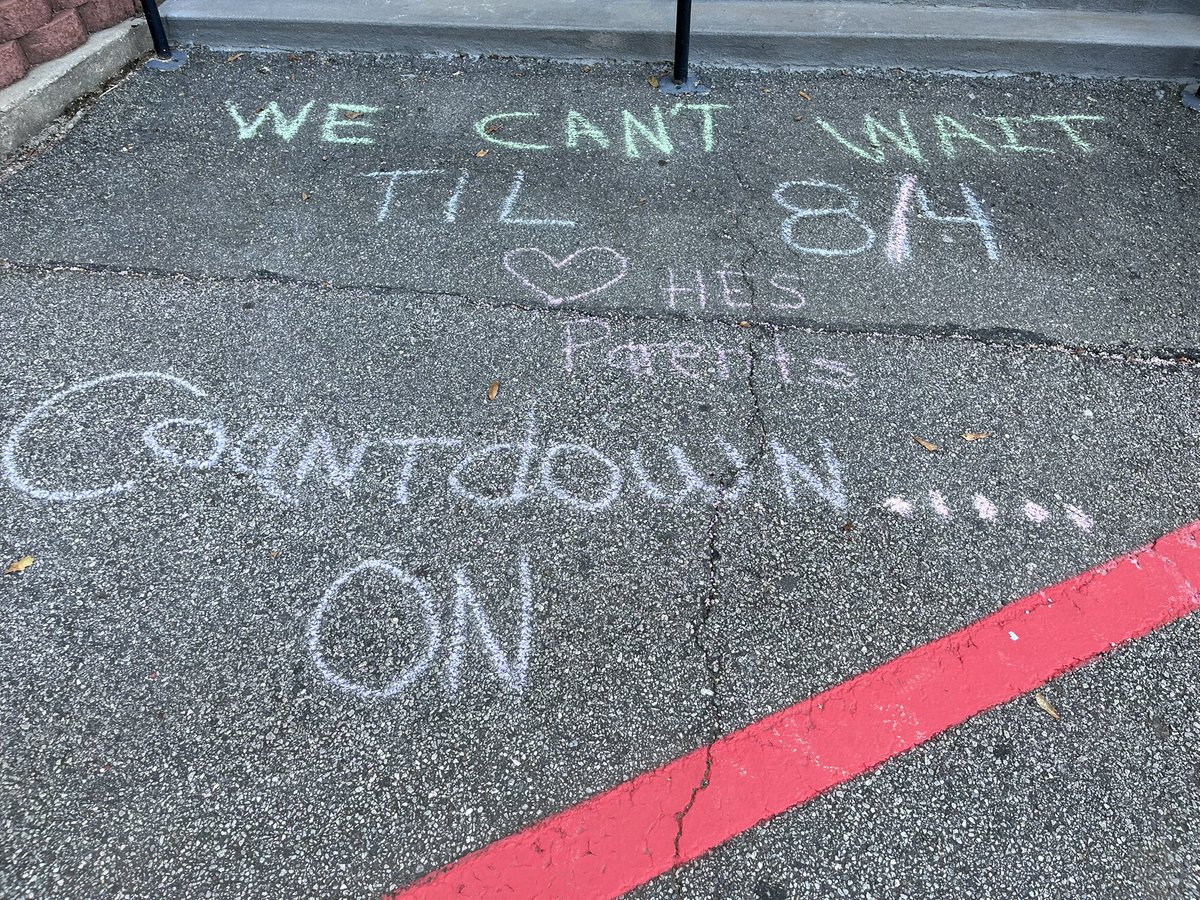 WE CAN'T WAIT
TIL 8/4
♡ HES
Parents
Countdown .....
ON